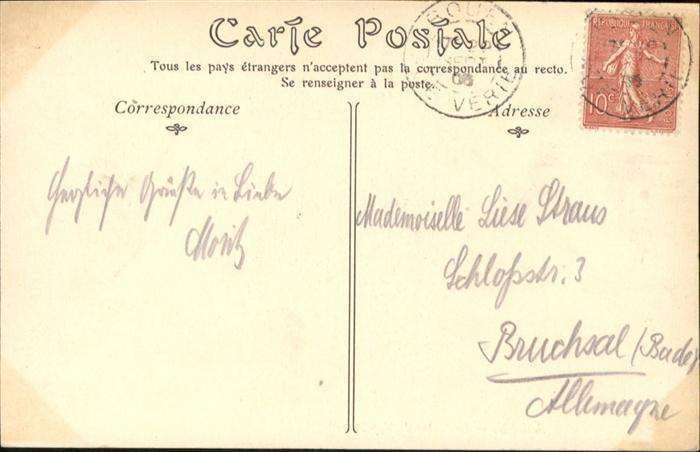 Carte Postale
Tous les pays étrangers n'acceptent pas la correspondance au recto.
Se renseigner à la poste.
Correspondance
Adresse
REPUBLIQUE FRANÇAISE
10c
Herzliche Grüße in Liebe
Moritz
Mademoiselle Liese Straus
Schloßstr. 3
Bruchsal (Baden)
Allemagne